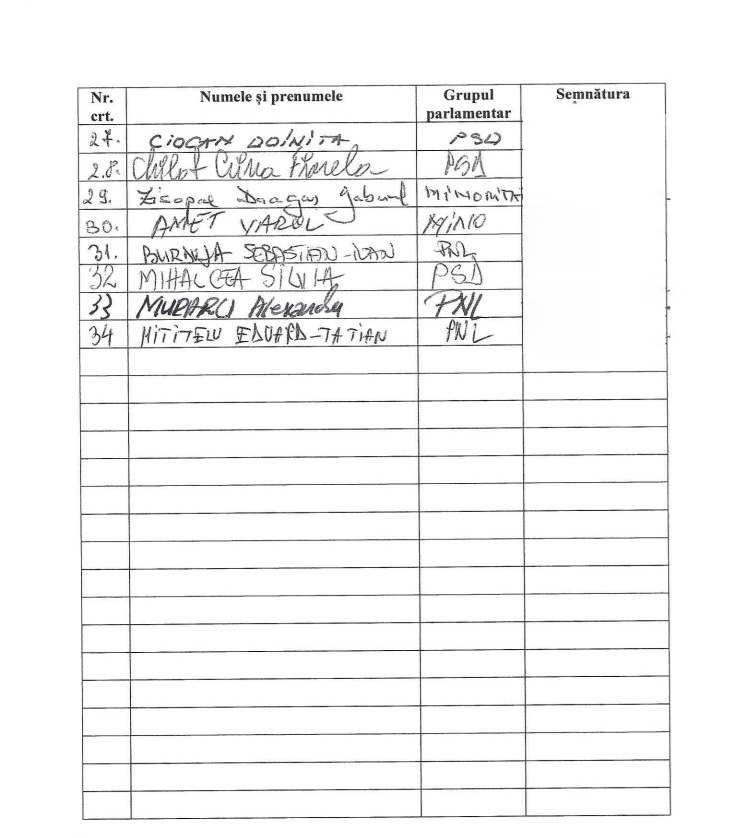 Nr. crt. Numele și prenumele Grupul parlamentar Semnătura
27. CIOCAN DOINITA PSD
28. PSD
29. Zisopol Dragos Gabriel MINORITĂ
30. AMET VAROL MINO
31. BURADUJA SEBASTIAN-IOAN PNL
32 MIHALCEA SILVIA PSD
33 MURARU Alexandru PNL
34 MITITELU EDUARD-TATIAN PNL